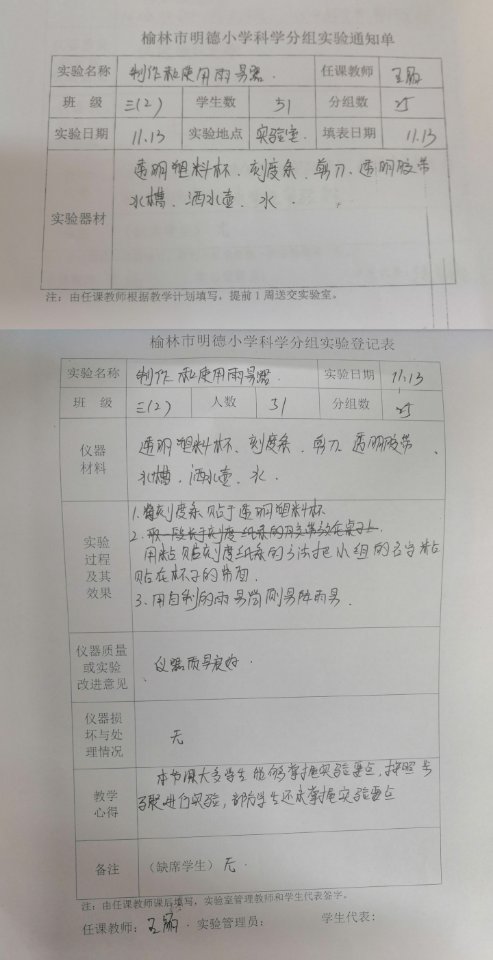 榆林市明德小学科学分组实验通知单
实验名称 制作和使用雨量器. 任课教师 王丽
班 级 三(2) 学生数 51 分组数 25
实验日期 11.13 实验地点 实验室. 填表日期 11.13
实验器材 透明塑料杯、刻度条、剪刀、透明胶带
水槽、洒水壶、水.
注：由任课教师根据教学计划填写，提前1周送交实验室。
榆林市明德小学科学分组实验登记表
实验名称 制作和使用雨量器. 实验日期 11.13
班 级 三(2) 人数 51 分组数 25
仪器材料 透明塑料杯、刻度条、剪刀 透明胶带、
水槽、洒水壶、水.
实验过程及其效果 1.将刻度条贴于透明塑料杯
2.取一段长于刻度纸条的胶带放在桌子上
用粘贴刻度纸条的方法把小组的名字粘
贴在杯子的背面.
3.用自制的雨量筒测量降雨量.
仪器质量或实验改进意见 仪器质量良好.
仪器损坏与处理情况 无
教学心得 本节课大多学生能够掌握实验要点，按照步
骤进行实验，部分学生还未掌握实验要点
备注 （缺席学生）无.
注：由任课教师课后填写，实验室管理教师和学生代表签字。
任课教师：王丽. 实验管理员： 学生代表：